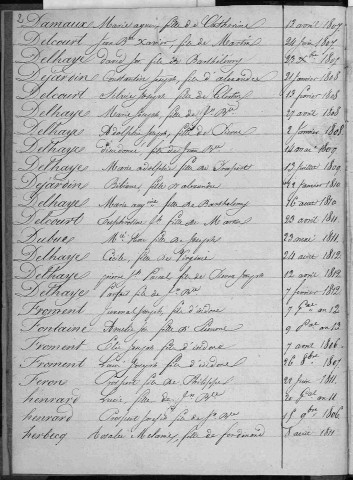 2
Damaux Marie agnes fille de Catherine 12 avril 1807
Delcourt Jean Bte xavier fils de Martin 24 juin 1807
Delhaye David jh fils de Barthelemy 22 Xbre
Dejardin Constantin joseph, fils d'alexandre 21 janvier 1808
Delcourt Silvie joseph fille de Celestin 13 fevrier 1808
Delhaye Marie joseph, fille de jn Bte 27 avril 1808
Delhaye Adolphe joseph, fils de Pierre 2 janvier 1808
Delhaye fils de jean Bte 14 mai 1807
Delhaye Marie adolphine fille de 13 juillet 1809
Dejardin fille d'alexandre 12 janvier 1810
Delhaye Marie aug.ne fille de Barthelemy 16 aout 1810
Delcourt fils de Marie 22 avril 1811
Dubus Mie fille de joseph 23 mai 1811
Delhaye fille de Virginie 24 avril 1812
Delhaye pierre jh fils de Pierre joseph 12 avril 1812
Delhaye Parfait fils de jn Bte 7 fevrier 1812
Froment joseph, fils d'isidore 7 an 12
Fontaine Amelie jh fille de 9 an 13
Froment joseph fils d'isidore 7 avril 1806
Froment Louis joseph fils d'isidore 26 8bre 1807
Feron Prospere fils de Philippe 29 juin 1811
henrard Lucie fille de jn Bte 20 an 11
henrard Prospere joseph fils de jn Bte 15 9bre 1806
herbecq Rosalie Melanie, fille de ferdinand 8 avril 1811